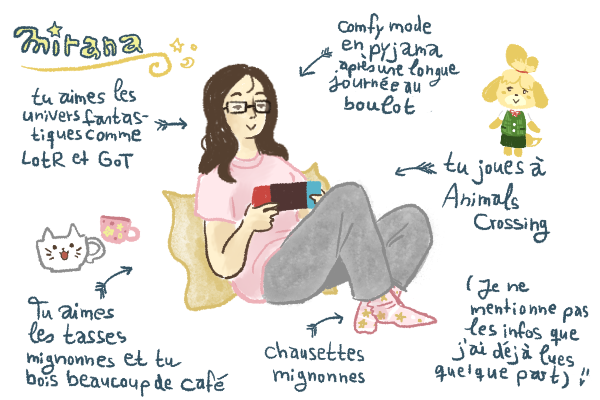 Mirana
tu aimes les
univers fantas-
tiques comme
LotR et GoT
Comfy mode
en pyjama
après une longue
journée au
boulot
tu joues à
Animals
Crossing
Tu aimes
les tasses
mignonnes et tu
bois beaucoup de café
chausettes
mignonnes
(Je ne
mentionne pas
les infos que
j'ai déjà lues
quelque part)